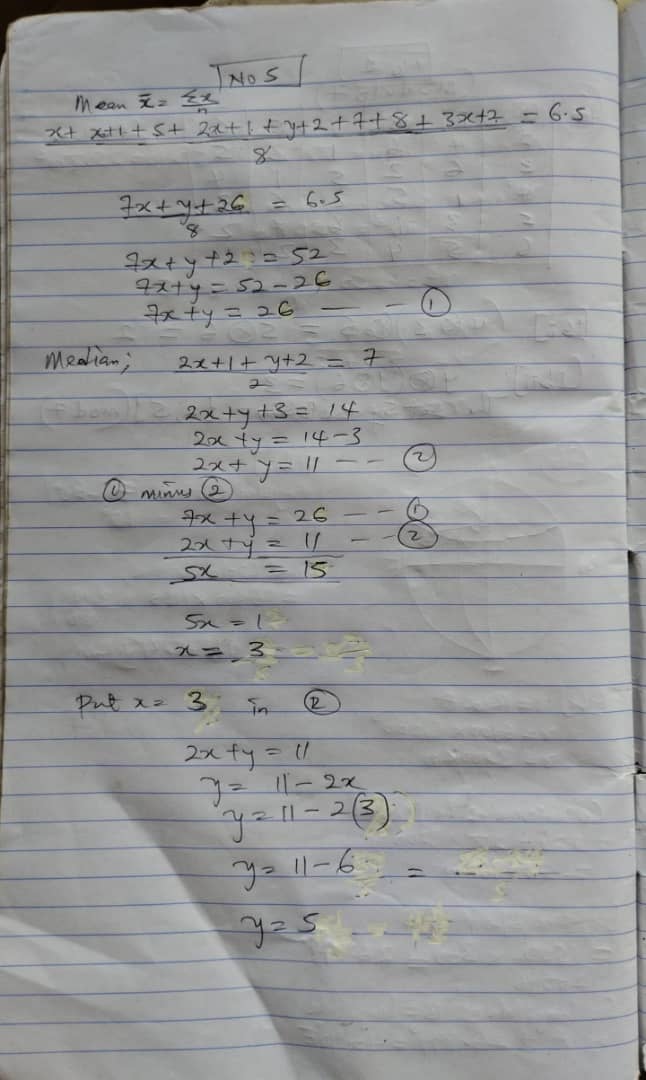 NO 5
Mean x̄ = Σx/n
x + x+1 + 5 + 2x+1 + y+2 + 7 + 8 + 3x+2 = 6.5
8
7x + y + 26 = 6.5
8
7x + y + 2 = 52
7x + y = 52 - 26
7x + y = 26 — - ①
Median; 2x+1 + y+2 = 7
2
2x + y + 3 = 14
2x + y = 14 - 3
2x + y = 11 - - ②
① minus ②
7x + y = 26 - - ①
2x + y = 11 - - ②
5x = 15
5x = 1
x = 3
Put x = 3 in ②
2x + y = 11
y = 11 - 2x
y = 11 - 2(3)
y = 11 - 6 =
y = 5